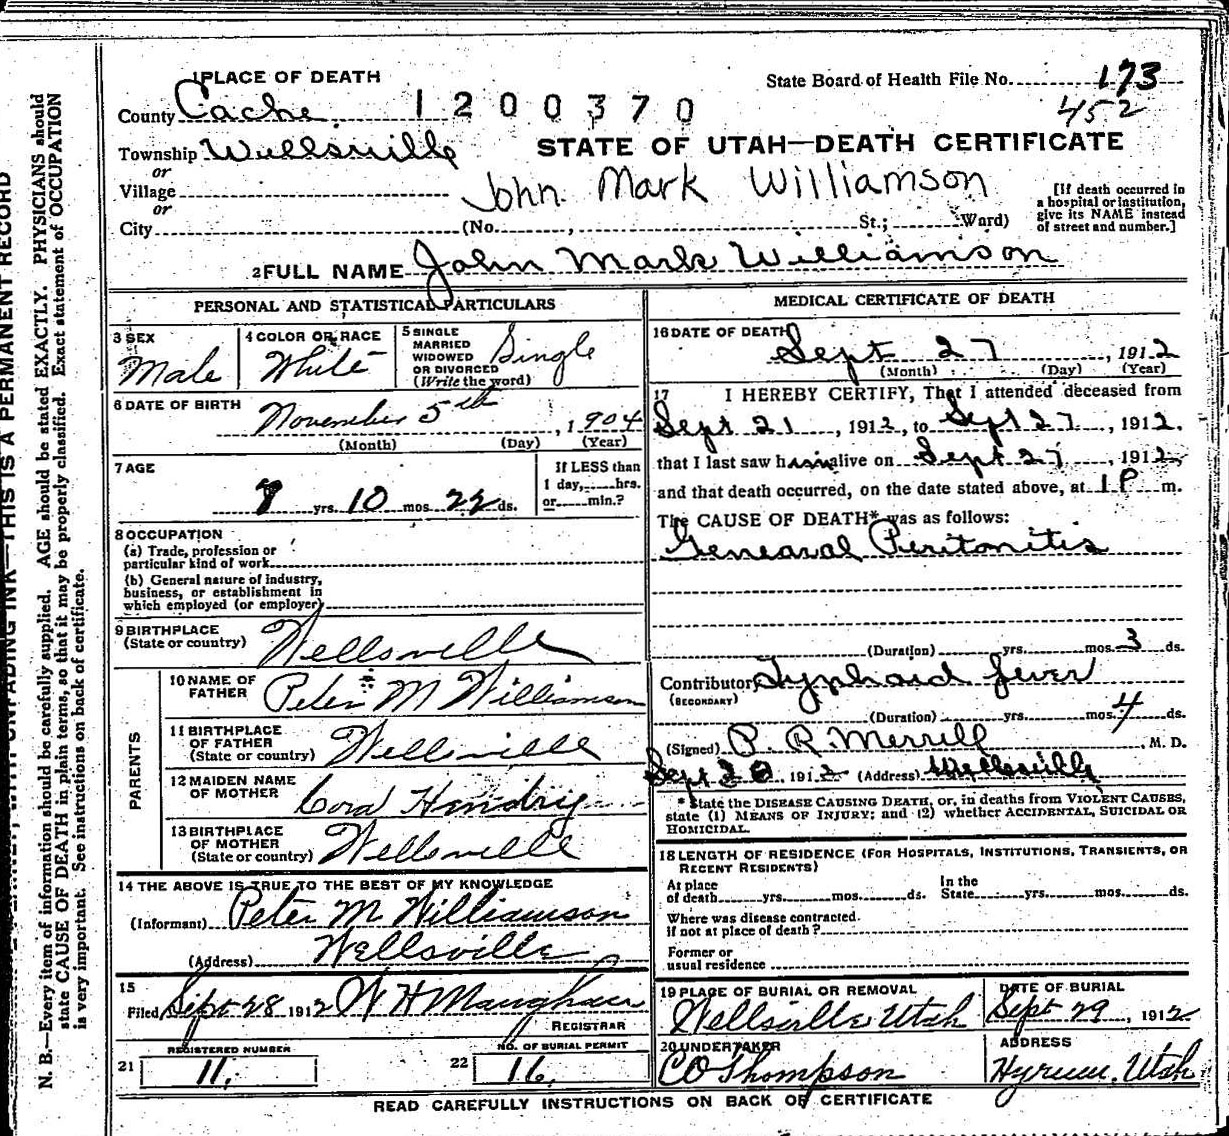 1 PLACE OF DEATH
State Board of Health File No. 173
County Cache. 1200370
452
Township Wellsville
STATE OF UTAH—DEATH CERTIFICATE
or
Village
John Mark Williamson
[If death occurred in a hospital or institution, give its NAME instead of street and number.]
or
City (No. , St.; Ward)
2 FULL NAME John Mark Williamson
PERSONAL AND STATISTICAL PARTICULARS
3 SEX
Male
4 COLOR OR RACE
White
5 SINGLE
MARRIED
WIDOWED
OR DIVORCED
(Write the word)
Single
6 DATE OF BIRTH
November 5th, 1904
(Month) (Day) (Year)
7 AGE
7 yrs. 10 mos. 22 ds.
If LESS than
1 day, hrs.
or min.?
8 OCCUPATION
(a) Trade, profession or
particular kind of work
(b) General nature of industry,
business, or establishment in
which employed (or employer)
9 BIRTHPLACE
(State or country)
Wellsville
PARENTS
10 NAME OF
FATHER
Peter M Williamson
11 BIRTHPLACE
OF FATHER
(State or country)
Wellsville
12 MAIDEN NAME
OF MOTHER
Cora Hendry
13 BIRTHPLACE
OF MOTHER
(State or country)
Wellsville
14 THE ABOVE IS TRUE TO THE BEST OF MY KNOWLEDGE
(Informant) Peter M Williamson
(Address) Wellsville
15
Filed Sept 28 1912 W H Maughan
REGISTRAR
REGISTERED NUMBER
21 11.
NO. OF BURIAL PERMIT
22 16.
MEDICAL CERTIFICATE OF DEATH
16 DATE OF DEATH
Sept 27, 1912
(Month) (Day) (Year)
17 I HEREBY CERTIFY, That I attended deceased from
Sept 21, 1912, to Sept 27, 1912.
that I last saw him alive on Sept 27, 1912,
and that death occurred, on the date stated above, at 1 P m.
The CAUSE OF DEATH* was as follows:
Genearal Peritonitis
(Duration) yrs. mos. 3 ds.
Contributory Typhoid fever
(SECONDARY)
(Duration) yrs. mos. 4 ds.
(Signed) P. R. Merrell, M. D.
Sept 28 1912 (Address) Wellsville
* State the DISEASE CAUSING DEATH, or, in deaths from VIOLENT CAUSES,
state (1) MEANS OF INJURY; and (2) whether ACCIDENTAL, SUICIDAL OR
HOMICIDAL.
18 LENGTH OF RESIDENCE (FOR HOSPITALS, INSTITUTIONS, TRANSIENTS, OR
RECENT RESIDENTS)
At place
of death yrs. mos. ds.
In the
State yrs. mos. ds.
Where was disease contracted.
if not at place of death?
Former or
usual residence
19 PLACE OF BURIAL OR REMOVAL
Wellsville Utah
DATE OF BURIAL
Sept 29, 1912
20 UNDERTAKER
CO Thompson
ADDRESS
Hyrum, Utah
READ CAREFULLY INSTRUCTIONS ON BACK OF CERTIFICATE
UNFADING INK—THIS IS A PERMANENT RECORD
N. B.—Every item of information should be carefully supplied. AGE should be stated EXACTLY. PHYSICIANS should
state CAUSE OF DEATH in plain terms, so that it may be properly classified. Exact statement of OCCUPATION
is very important. See instructions on back of certificate.